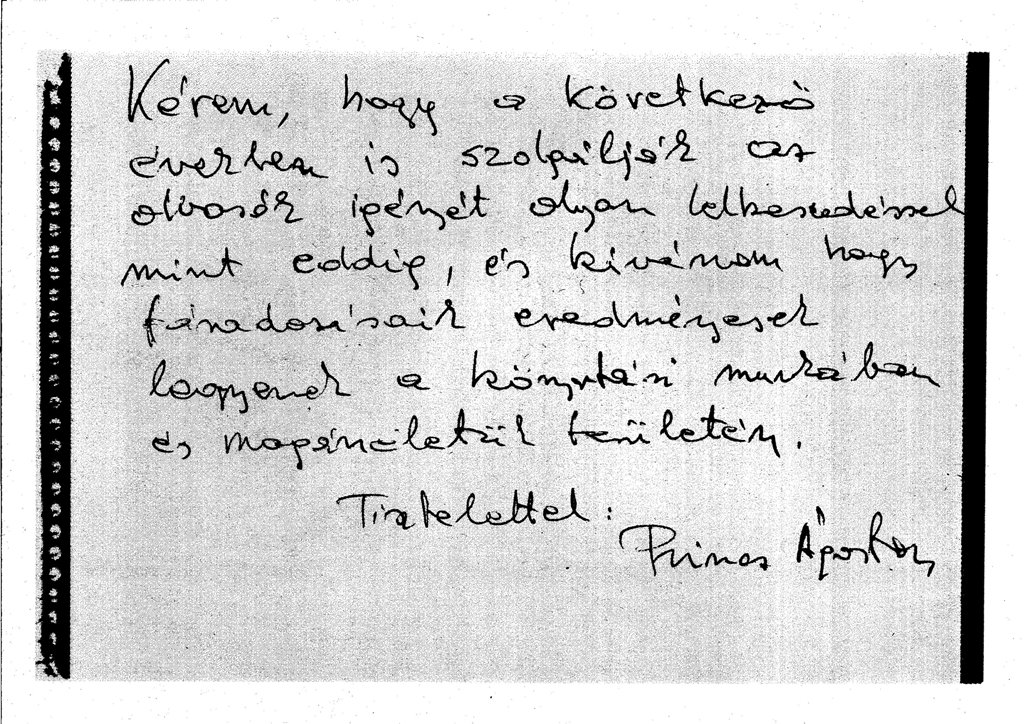 Kérem, hogy a következő
években is szolgálják az
olvasók igényét olyan lelkesedéssel
mint eddig, és kívánom hogy
fáradozásaik eredményesek
legyenek a könyvtári munkában
és magánéletük területén.
Tisztelettel:
Prinos Ágoston